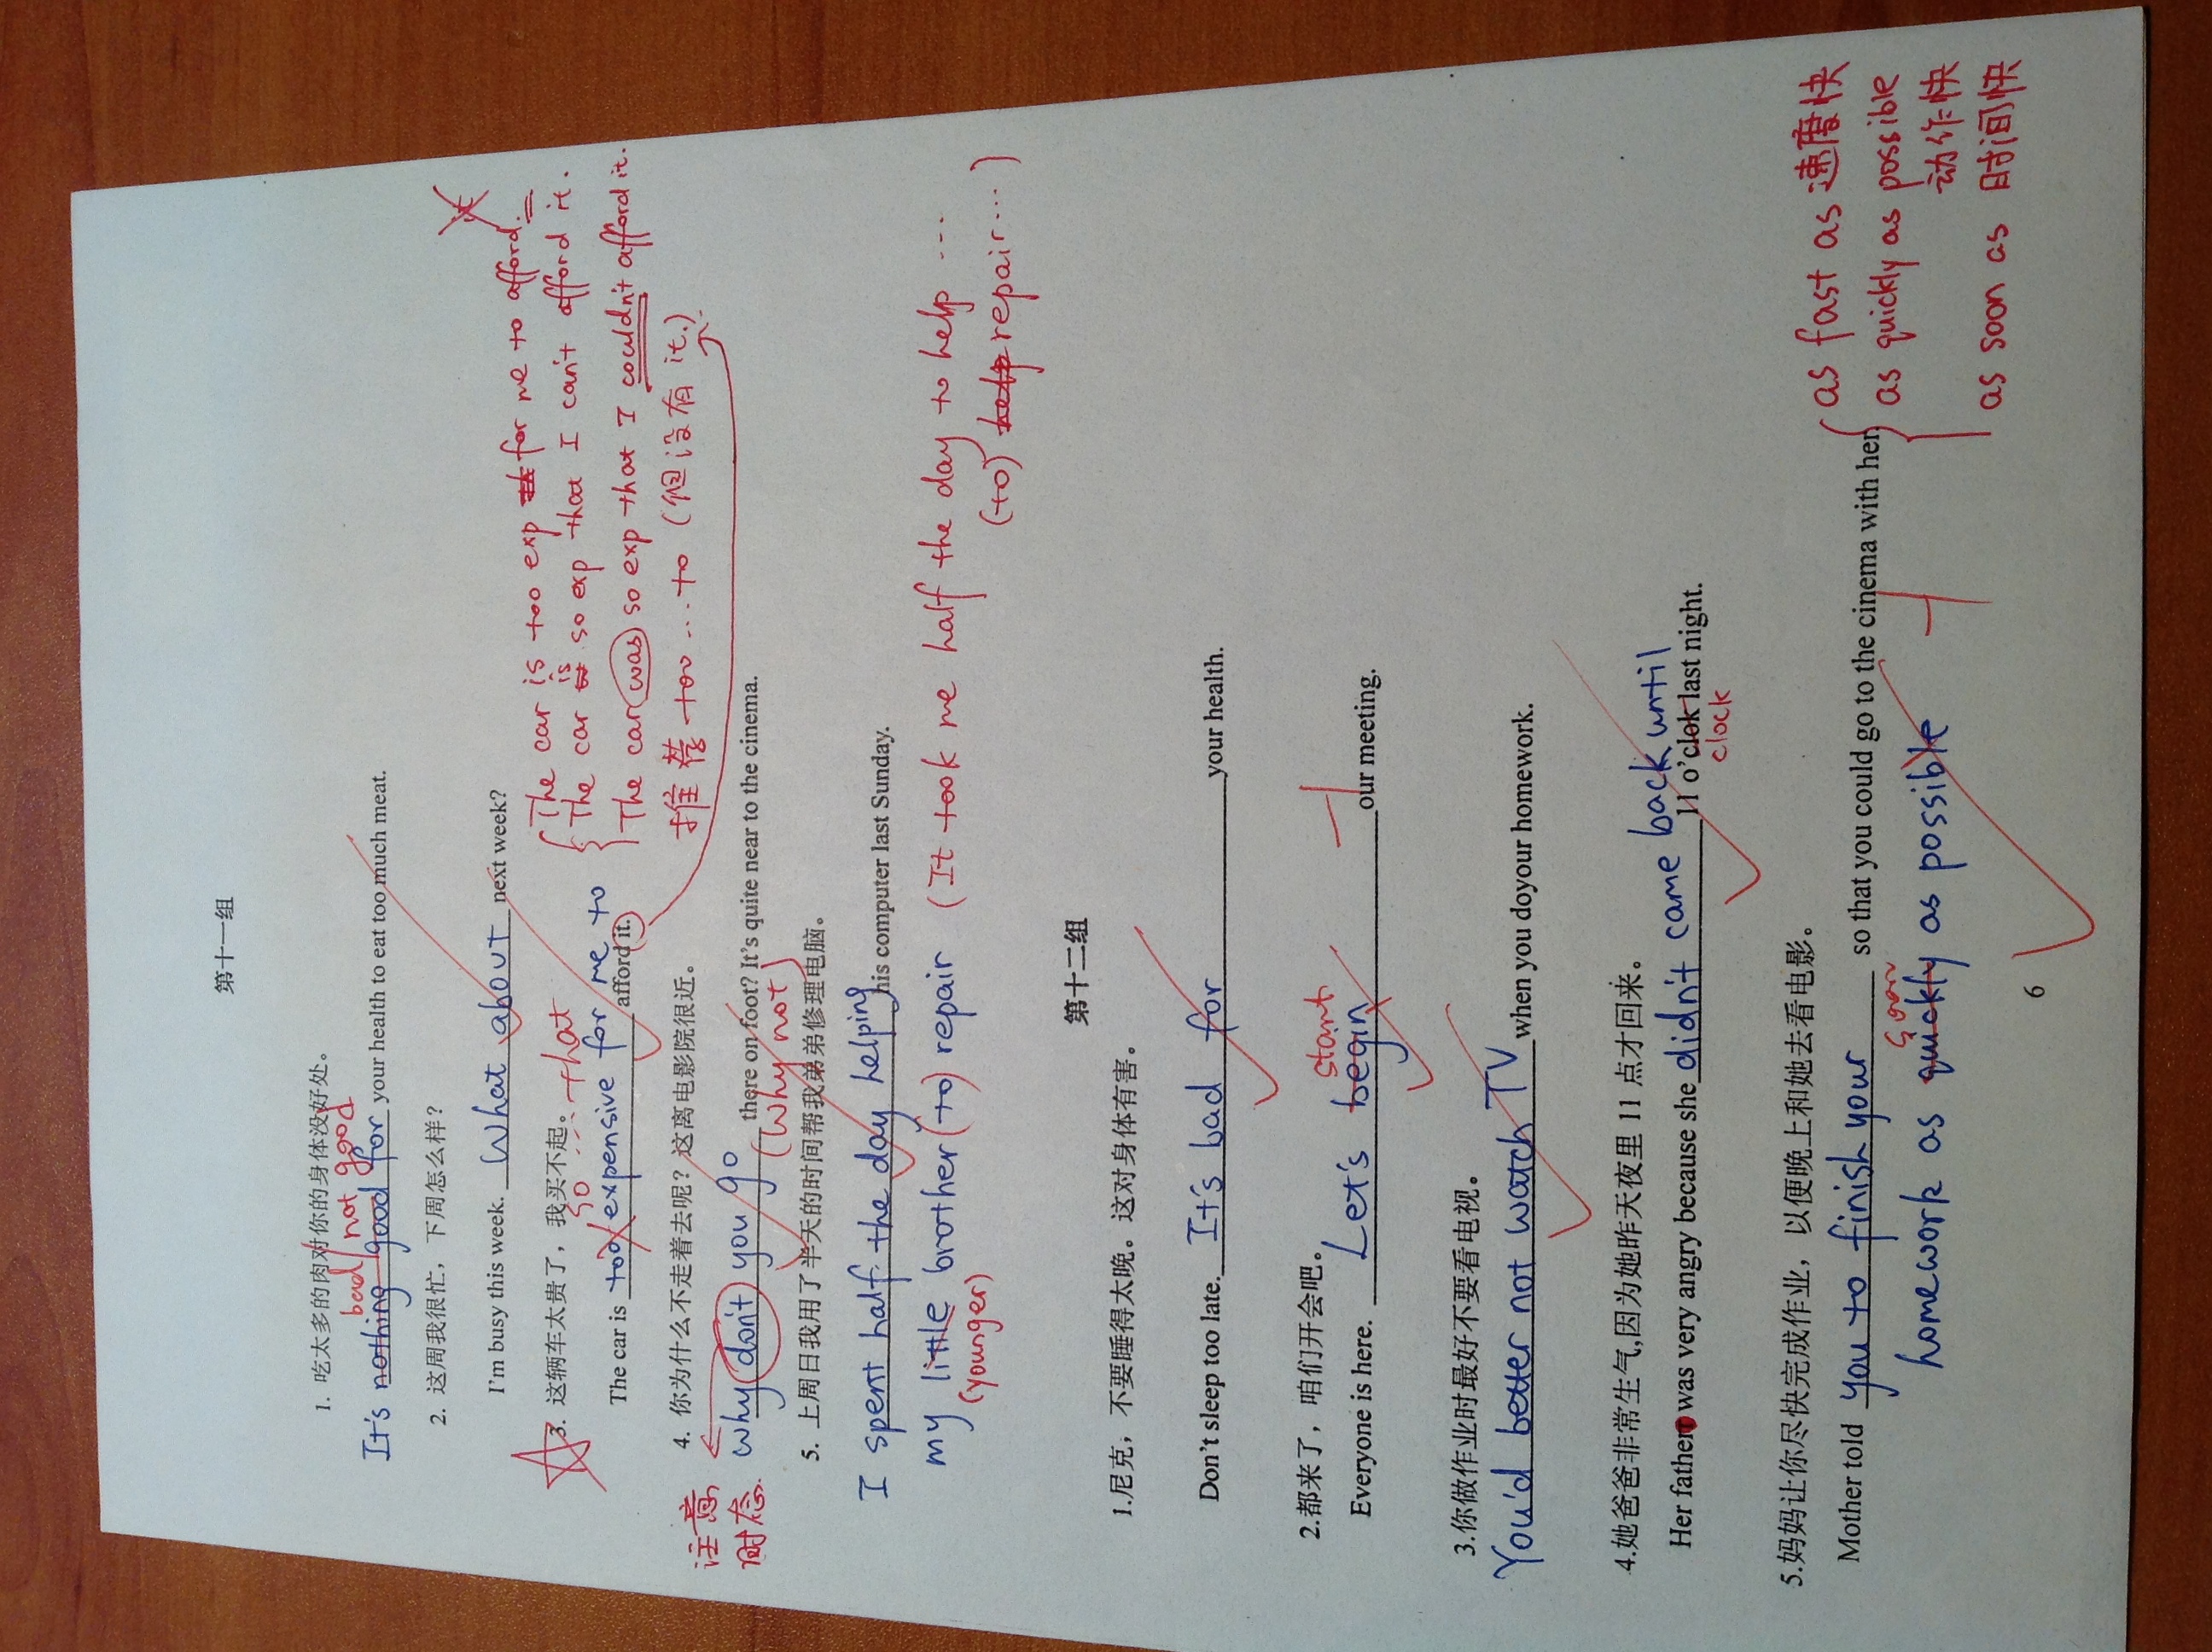 第十一组
1. 吃太多的肉对你的身体没好处。
bad / not good
It's nothing good for your health to eat too much meat.
2. 这周我很忙，下周怎么样？
I'm busy this week. What about next week?
3. 这辆车太贵了，我买不起。
so ... that
The car is too expensive for me to afford it.
it
The car is too exp for me to afford.
The car is so exp that I can't afford it.
The car was so exp that I couldn't afford it.
推荐 too ... to (但没有 it.)
4. 你为什么不走着去呢？这离电影院很近。
注意
时态.
Why don't you go there on foot? It's quite near to the cinema.
(Why not)
5. 上周日我用了半天的时间帮我弟弟修理电脑。
I spent half the day helping his computer last Sunday.
my little brother (to) repair (It took me half the day to help ...
(younger)
(to) help repair ... )
第十二组
1.尼克，不要睡得太晚。这对身体有害。
Don't sleep too late. It's bad for your health.
2.都来了，咱们开会吧。
start
Everyone is here. Let's begin our meeting.
3.你做作业时最好不要看电视。
You'd better not watch TV when you doyour homework.
4.她爸爸非常生气,因为她昨天夜里 11 点才回来。
Her father was very angry because she didn't came back until 11 o'clok last night.
clock
5.妈妈让你尽快完成作业，以便晚上和她去看电影。
Mother told you to finish your so that you could go to the cinema with her
soon
homework as quickly as possible
as fast as 速度快
as quickly as possible
动作快
as soon as 时间快
6